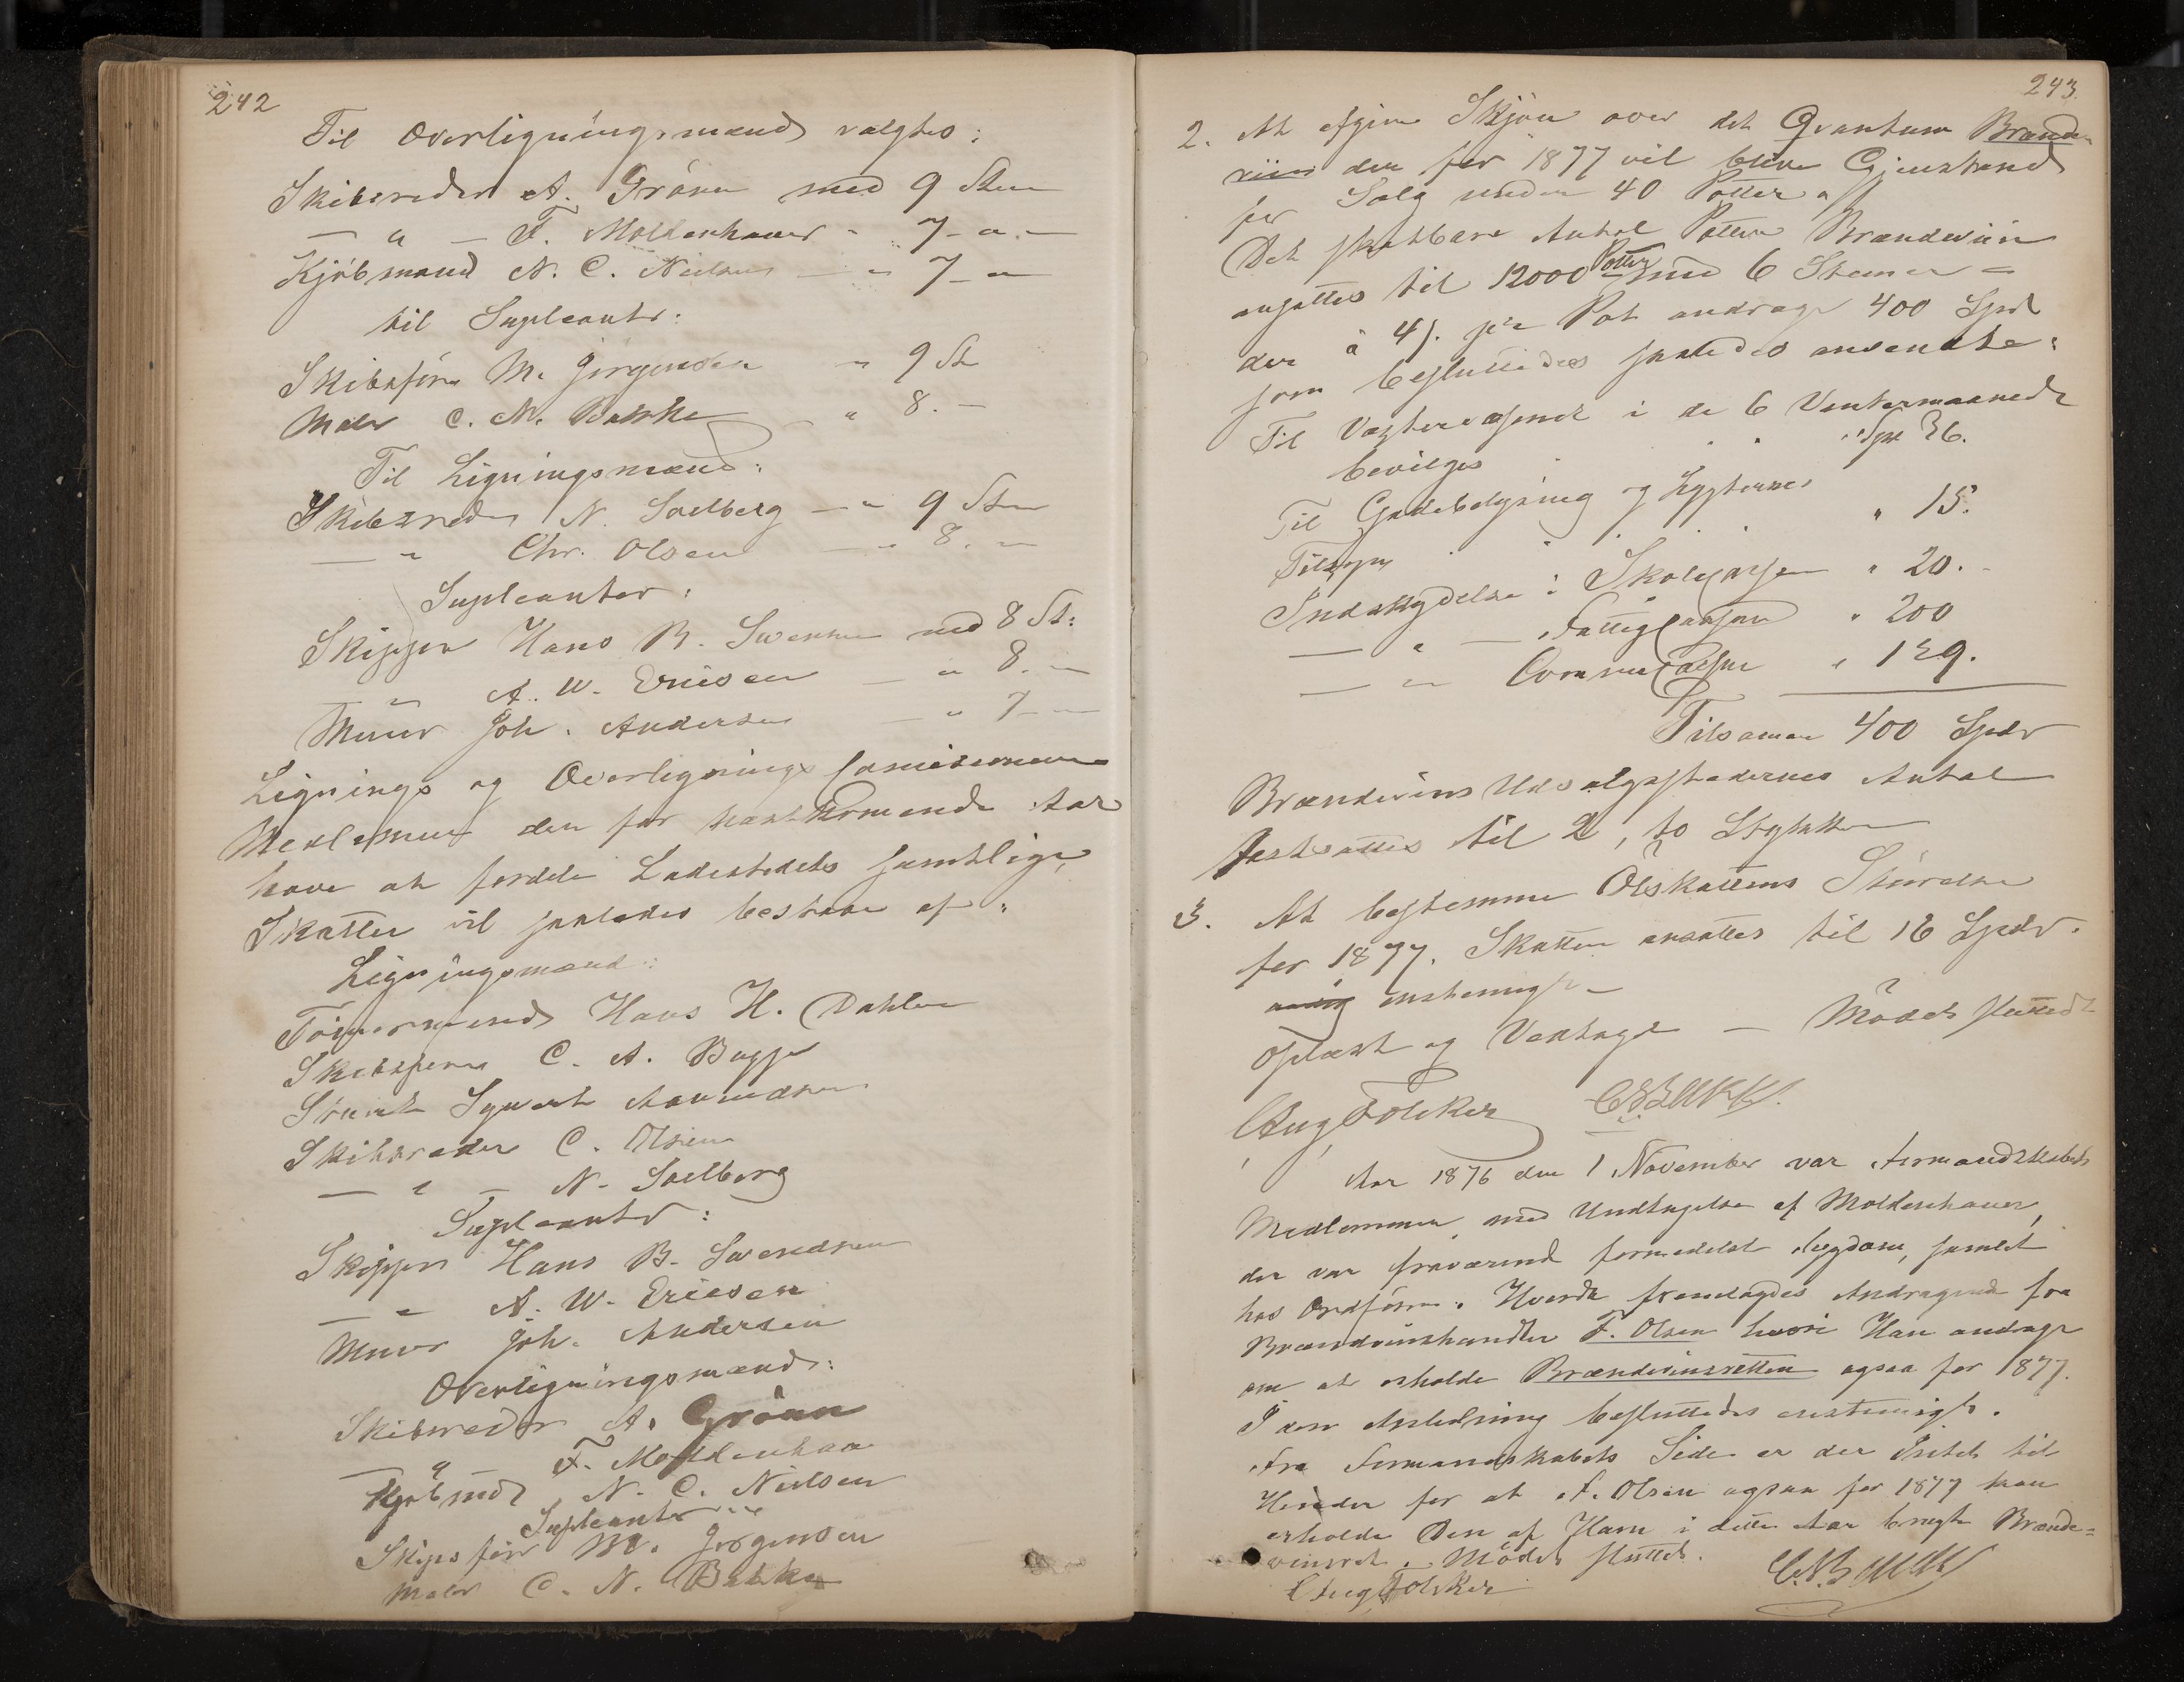 242
Til Overligningsmænd valgtes:
Skibsreder A. Grönn med 9 Stem
— " — F. Moldenhauer " 7 — " —
Kjöbmand N. C. Nielsen — " 7 — "
til Supleanter:
Skibsförer M. Jörgensen " 9 St
Maler C. N. Bakke " 8. —
Til Ligningsmænd:
Skibsreder N. Soelberg — " 9 Stem
— " Chr. Olsen — " 8. —
Supleanter:
Skipper Hans B. Svendsen med 8 St:
— " A. W. Ericsen — " 8. —
Murer Joh. Andersen — " 7 —
Lignings og Overlignings Comissionens
Medlemmer der for næstkommende Aar
have at fordele Ladestedets samtlige
Skatter vil saaledes bestaae af:
Ligningsmænd:
Tömmermand Hans H. Dahlen
Skibsförer C. A. Bugge
Sivert Aanundsen
Skibsreder C. Olsen
— " — N. Soelberg
Supleanter:
Skipper Hans B. Svendsen
— " A. W. Ericsen
Murer Joh. Andersen
Overligningsmænd:
Skibsreder A. Grönn
— " — F. Moldenhauer
Kjöbmd N. C. Nielsen
Supleanter
Skipsförer M. Jörgensen
Maler C. N. Bakke
243.
2. At afgive Skjön over det Qvantum Brænde-
viin der for 1877 vil blive Gjenstand
for Salg under 40 Potter.
Det skatbare Antal Potter Brændeviin
ansattes til 12000 Potter med 6 Stemmer
der á 4 s. pr Pot andrage 400 Spd
som besluttedes saaledes anvendte:
Til Vægtervæsenet i de 6 Vintermaaneder
bevilges " Spd 36.
Til Gadebelysing og Lygternes
Tilsyn " 15.
Indskydelse i Skolecassen " 20. -
— " — Fattigcassen " 200
— " — Communecassen " 129.
Tilsamen 400 Spdr
Brændeviins Udsalgsstedernes Antal
fastsattes til 2, to
3. At bestemme Ölskattens Störrelse
for 1877. Skatten ansattes til 16 Spdr.
enstemmigt. —
Oplæst og Vedtaget — Mödet sluttedt
Aug Folcker C N Bakke.
Aar 1876 den 1 November var Formandskabets
Medlemmer, med Undtagelse af Moldenhauer,
der var fraværend formedelst Sygdom, samlet
hos Ordförer. Hvorda fremlagdes Andragende fra
Brændeviinshandler F. Olsen hvori Han andrage
om at erholde Brændeviinsretten ogsaa for 1877.
I den Anledning besluttedes enstemmigt.
Fra Formandskabets Side er der Intet til
Hinder for at F. Olsen ogsaa for 1877 kan
erholde Den af Ham i dette Aar benyttede Brænde=
viinsret. Mödet sluttet.
Aug Folcker C. N. Bakke